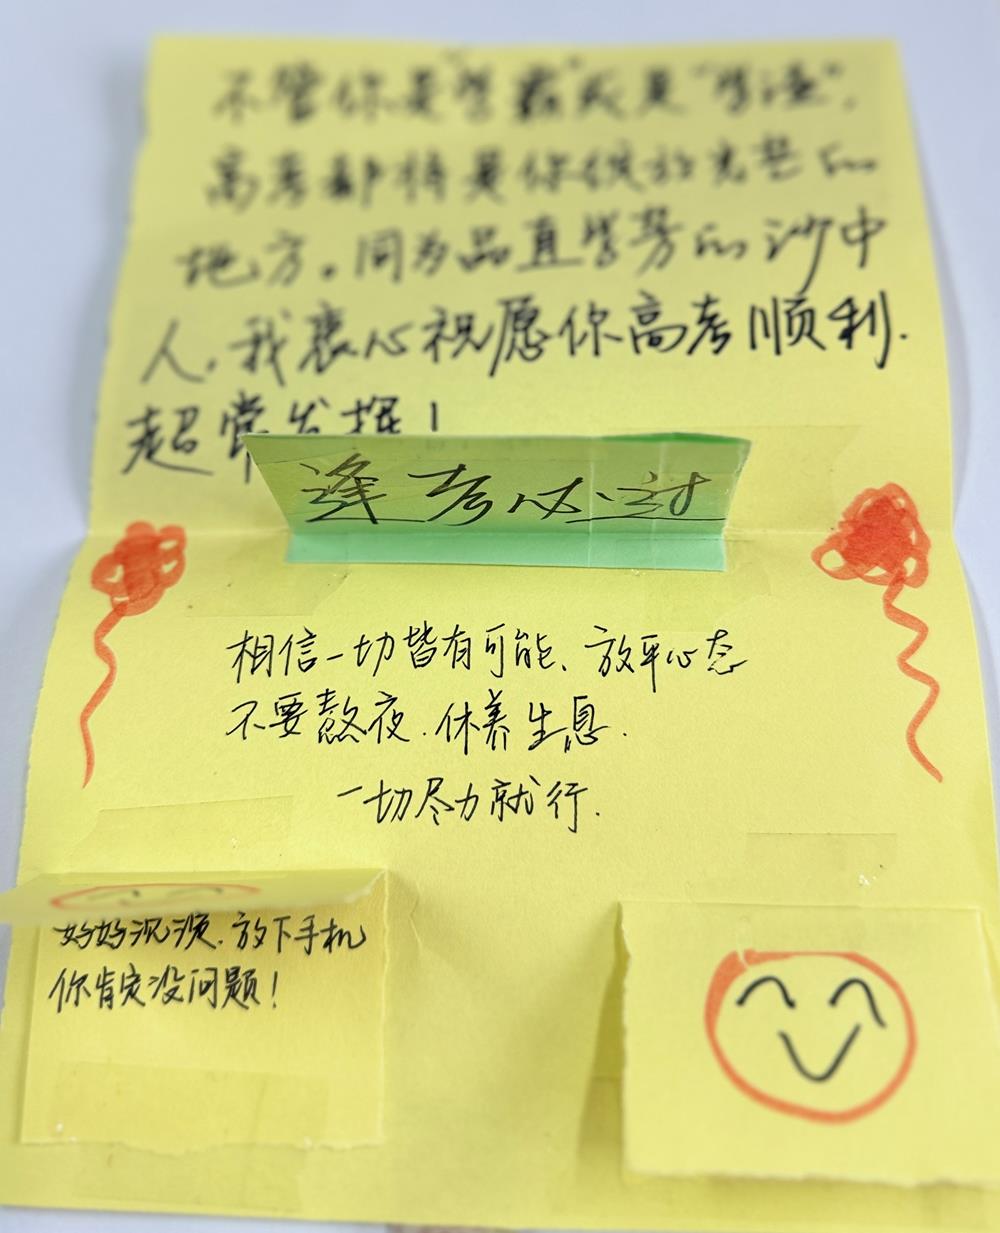 不管你是“学霸”或是“学渣”，
高考都将是你绽放光芒的
地方。同为品直学劳的沙中
人，我衷心祝愿你高考顺利.
超常发挥！
逢考必过
相信一切皆有可能、放平心态
不要熬夜.休养生息.
一切尽力就行.
好好沉淀.放下手机
你肯定没问题！